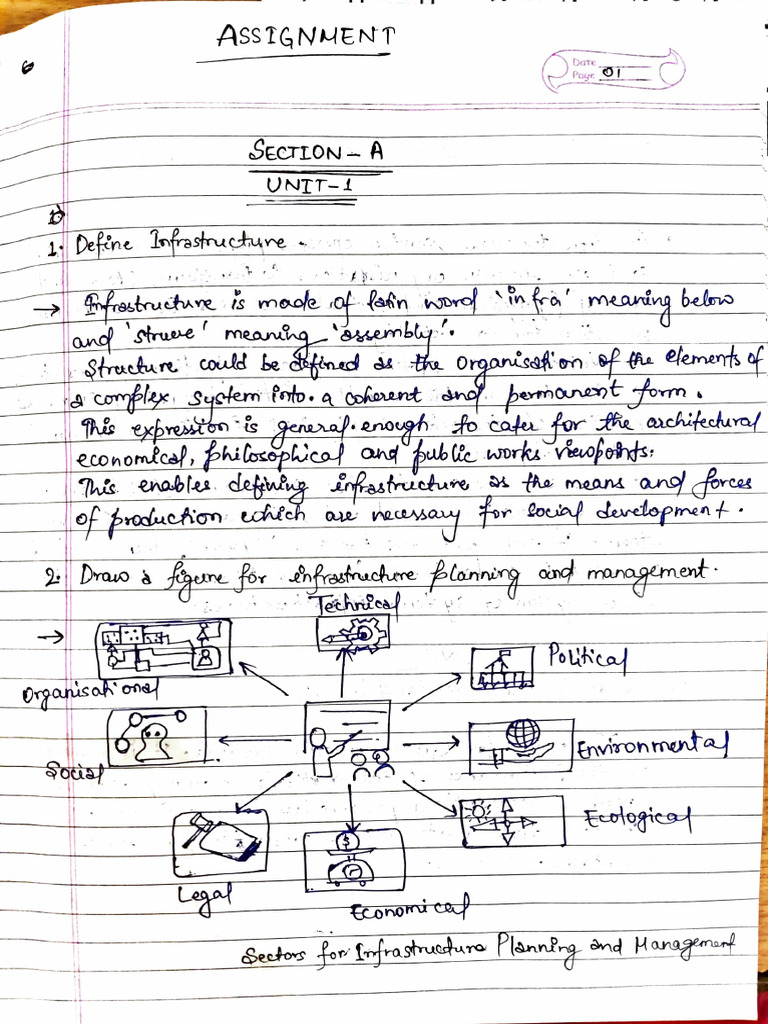 ASSIGNMENT
Date
Page 01
SECTION - A
UNIT-1
1. Define Infrastructure.
→ Infrastructure is made of latin word 'infra' meaning below
and 'struere' meaning 'assembly'.
Structure could be defined as the organisation of the elements of
a complex system into a coherent and permanent form.
This expression is general enough to cater for the architectural
economical, philosophical and public works viewpoints.
This enables defining infrastructure as the means and forces
of production which are necessary for social development.
2. Draw a figure for infrastructure planning and management.
Technical
→
Political
Organisational
Environmental
Social
Ecological
$
Legal
Economical
Sectors for Infrastructure Planning and Management